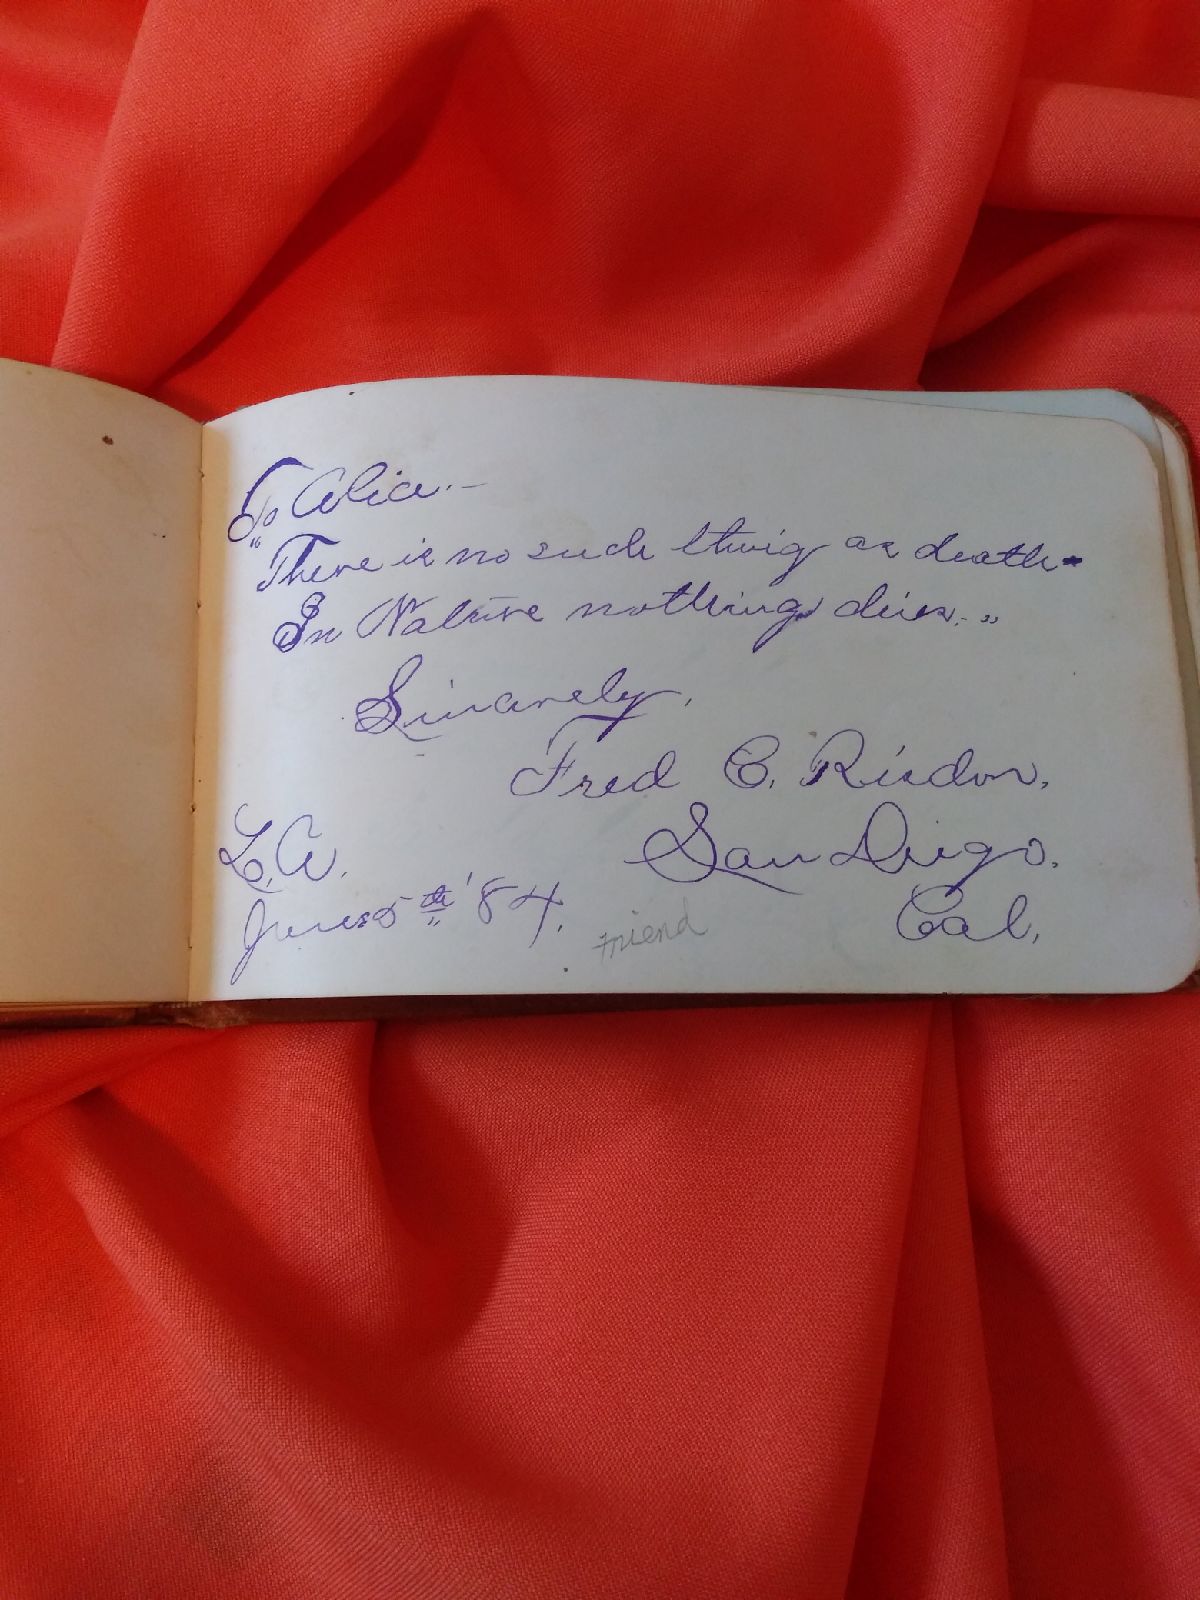 To Alice.—
"There is no such thing as death-
In Nature nothing dies."
Sincerely,
Fred E. Risdon,
San Diego.
Cal.
L.A.
June 5th '84.
Friend